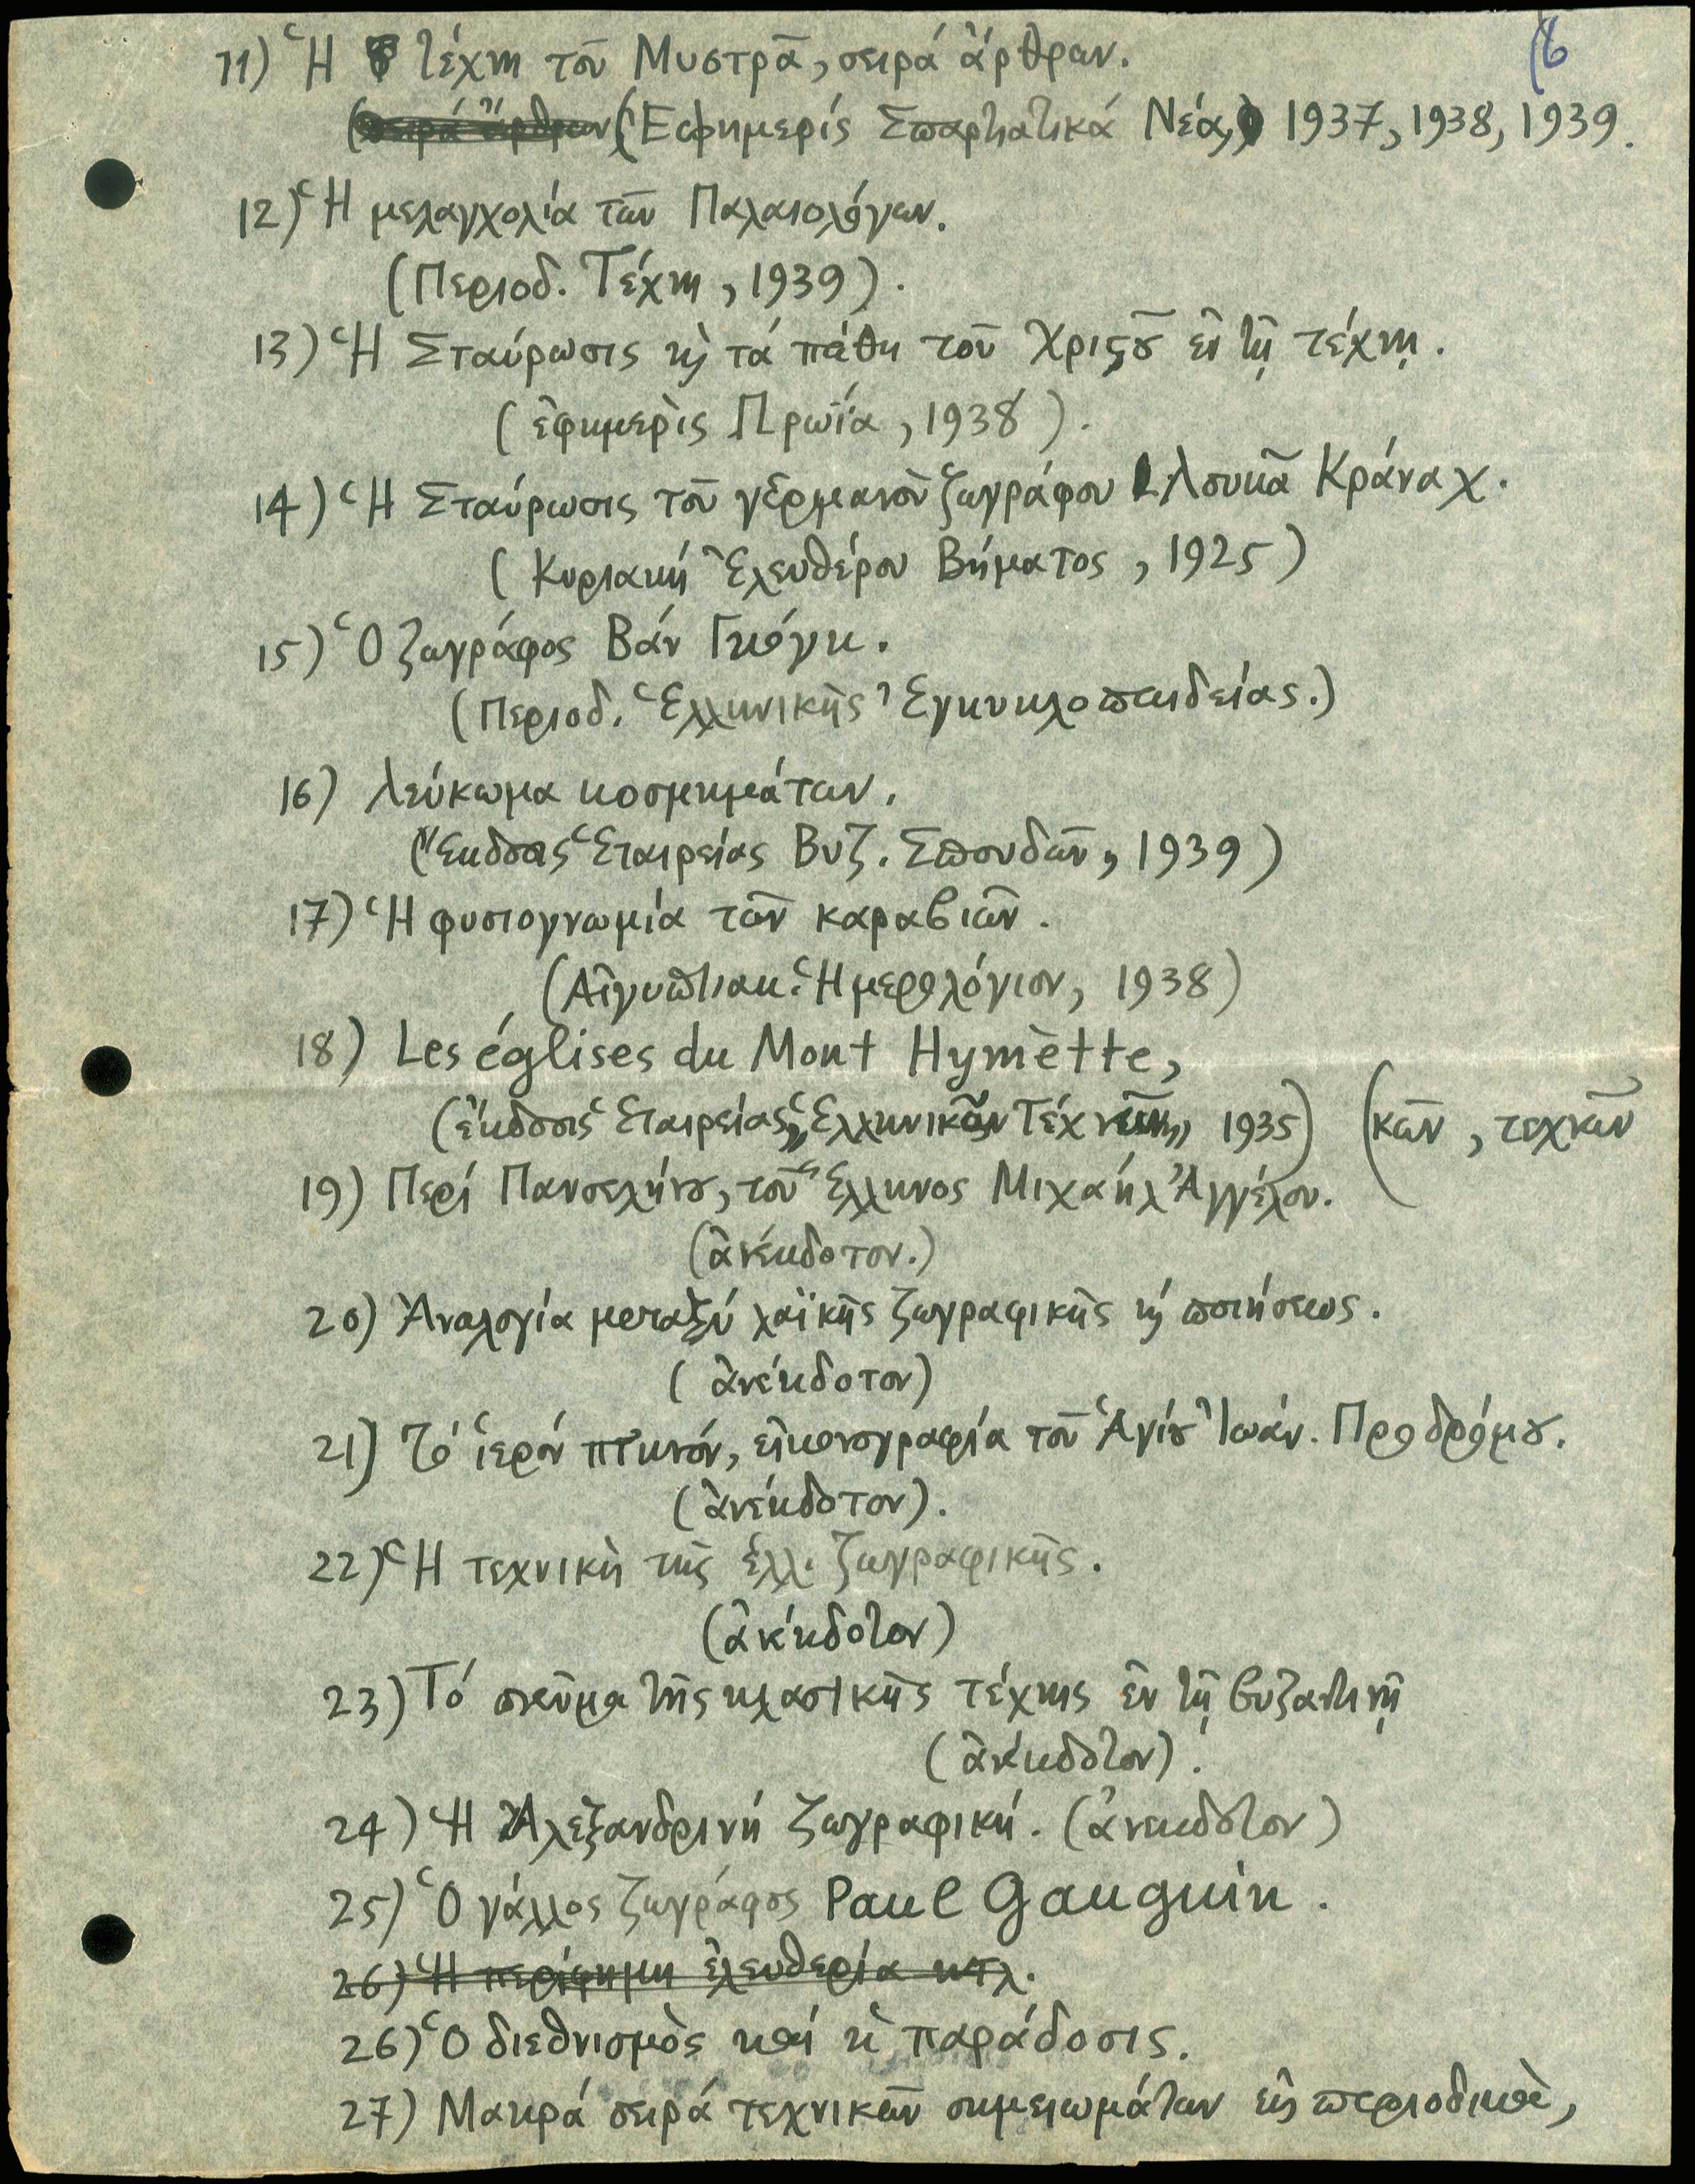 (6
11) Ἡ τέχνη τοῦ Μυστρᾶ, σειρά ἄρθρων.
(σειρά ἄρθρων) (Ἐφημερίς Σπαρτιατικά Νέα,) 1937, 1938, 1939.
12) Ἡ μελαγχολία τῶν Παλαιολόγων.
(Περιοδ. Τέχνη, 1939).
13) Ἡ Σταύρωσις κ̀ τά πάθη τοῦ Χριστοῦ ἐν τῇ τέχνῃ.
(ἐφημερὶς Πρωΐα, 1938).
14) Ἡ Σταύρωσις τοῦ γερμανοῦ ζωγράφου Λουκᾶ Κράναχ.
(Κυριακή Ἐλευθέρου Βήματος, 1925)
15) Ὁ ζωγράφος Βάν Γκόγκ.
(Περιοδ. Ἑλληνικῆς Ἐγκυκλοπαιδείας.)
16) Λεύκωμα κοσμημάτων.
(Ἔκδοσις Ἑταιρείας Βυζ. Σπουδῶν, 1939)
17) Ἡ φυσιογνωμία τῶν καραβιῶν.
(Αἰγυπτιακ. Ἡμερολόγιον, 1938)
18) Les églises du Mont Hymètte,
(ἔκδοσις Ἑταιρείας „Ἑλληνικῶν Τεχνῶν„ 1935) (κῶν, τεχνῶν
19) Περί Πανσελήνου, τοῦ Ἕλληνος Μιχαήλ Ἀγγέλου.
(ἀνέκδοτον.)
20) Ἀναλογία μεταξύ λαϊκῆς ζωγραφικῆς κ̀ ποιήσεως.
(ἀνέκδοτον)
21) Τό ἱερόν πτηνόν, εἰκονογραφία τοῦ Ἁγίου Ἰωάν. Προδρόμου.
(ἀνέκδοτον).
22) Ἡ τεχνικὴ τῆς ἑλλ. ζωγραφικῆς.
(ἀνέκδοτον)
23) Τό πνεῦμα τῆς κλασικῆς τέχνης ἐν τῇ βυζαντινῇ
(ἀνέκδοτον).
24) Ἡ Ἀλεξανδρινή ζωγραφική. (ἀνέκδοτον)
25) Ὁ γάλλος ζωγράφος Paul Gauguin.
26) Ἡ περίφημη ἐλευθερία κτλ.
26) Ὁ διεθνισμὸς καί ἡ παράδοσις.
27) Μακρά σειρά τεχνικῶν σημειωμάτων εἰς περιοδικὰ,